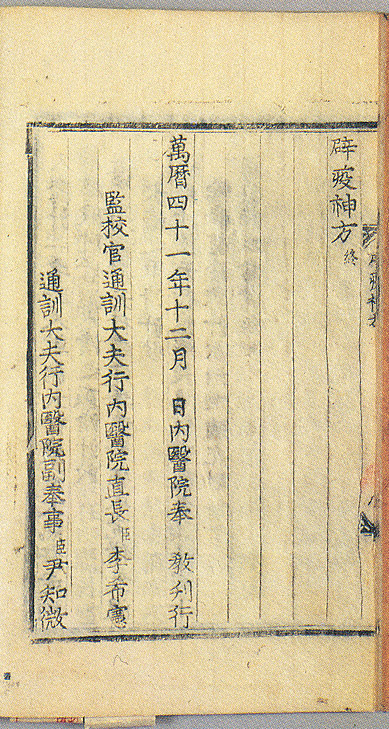 辟疫神方 終
萬曆四十一年十二月 日內醫院奉 敎刋行
監校官通訓大夫行內醫院直長臣李希憲
通訓大夫行內醫院副奉事臣尹知微